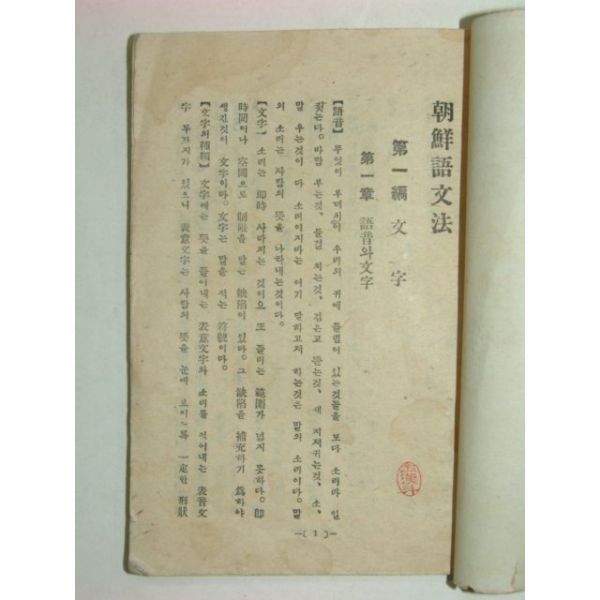 朝鮮語文法
第一編 文字
第一章 語音와文字
【語音】 무엇이 부대처서 우리의 귀에 들림이 있는것들을 모다 소리라 일
짓는다. 바람 부는것, 물결 치는것, 검은고 뜯는것, 새 지저귀는것, 소,
말 우는것이 다 소리이지마는 여기 말하고저 하는것은 말의 소리이다. 말
의 소리는 사람의 뜻을 나타내는것이다.
【文字】 소리는 即時 사라지는 것이오 또 들리는 範圍가 넓지 못하다. 即
時間이나 空間으로 制限을 받는 缺陷이 있다. 그 缺陷을 補充하기 爲하야
생긴것이 文字이다. 文字는 말을 적는 符號이다.
【文字의 種類】 文字에는 뜻을 들어내는 表意文字와 소리를 적어내는 表音文
字 두가지가 있으니 表意文字는 사람의 뜻을 눈에 보이도록 一定한 形狀
—( 1 )—